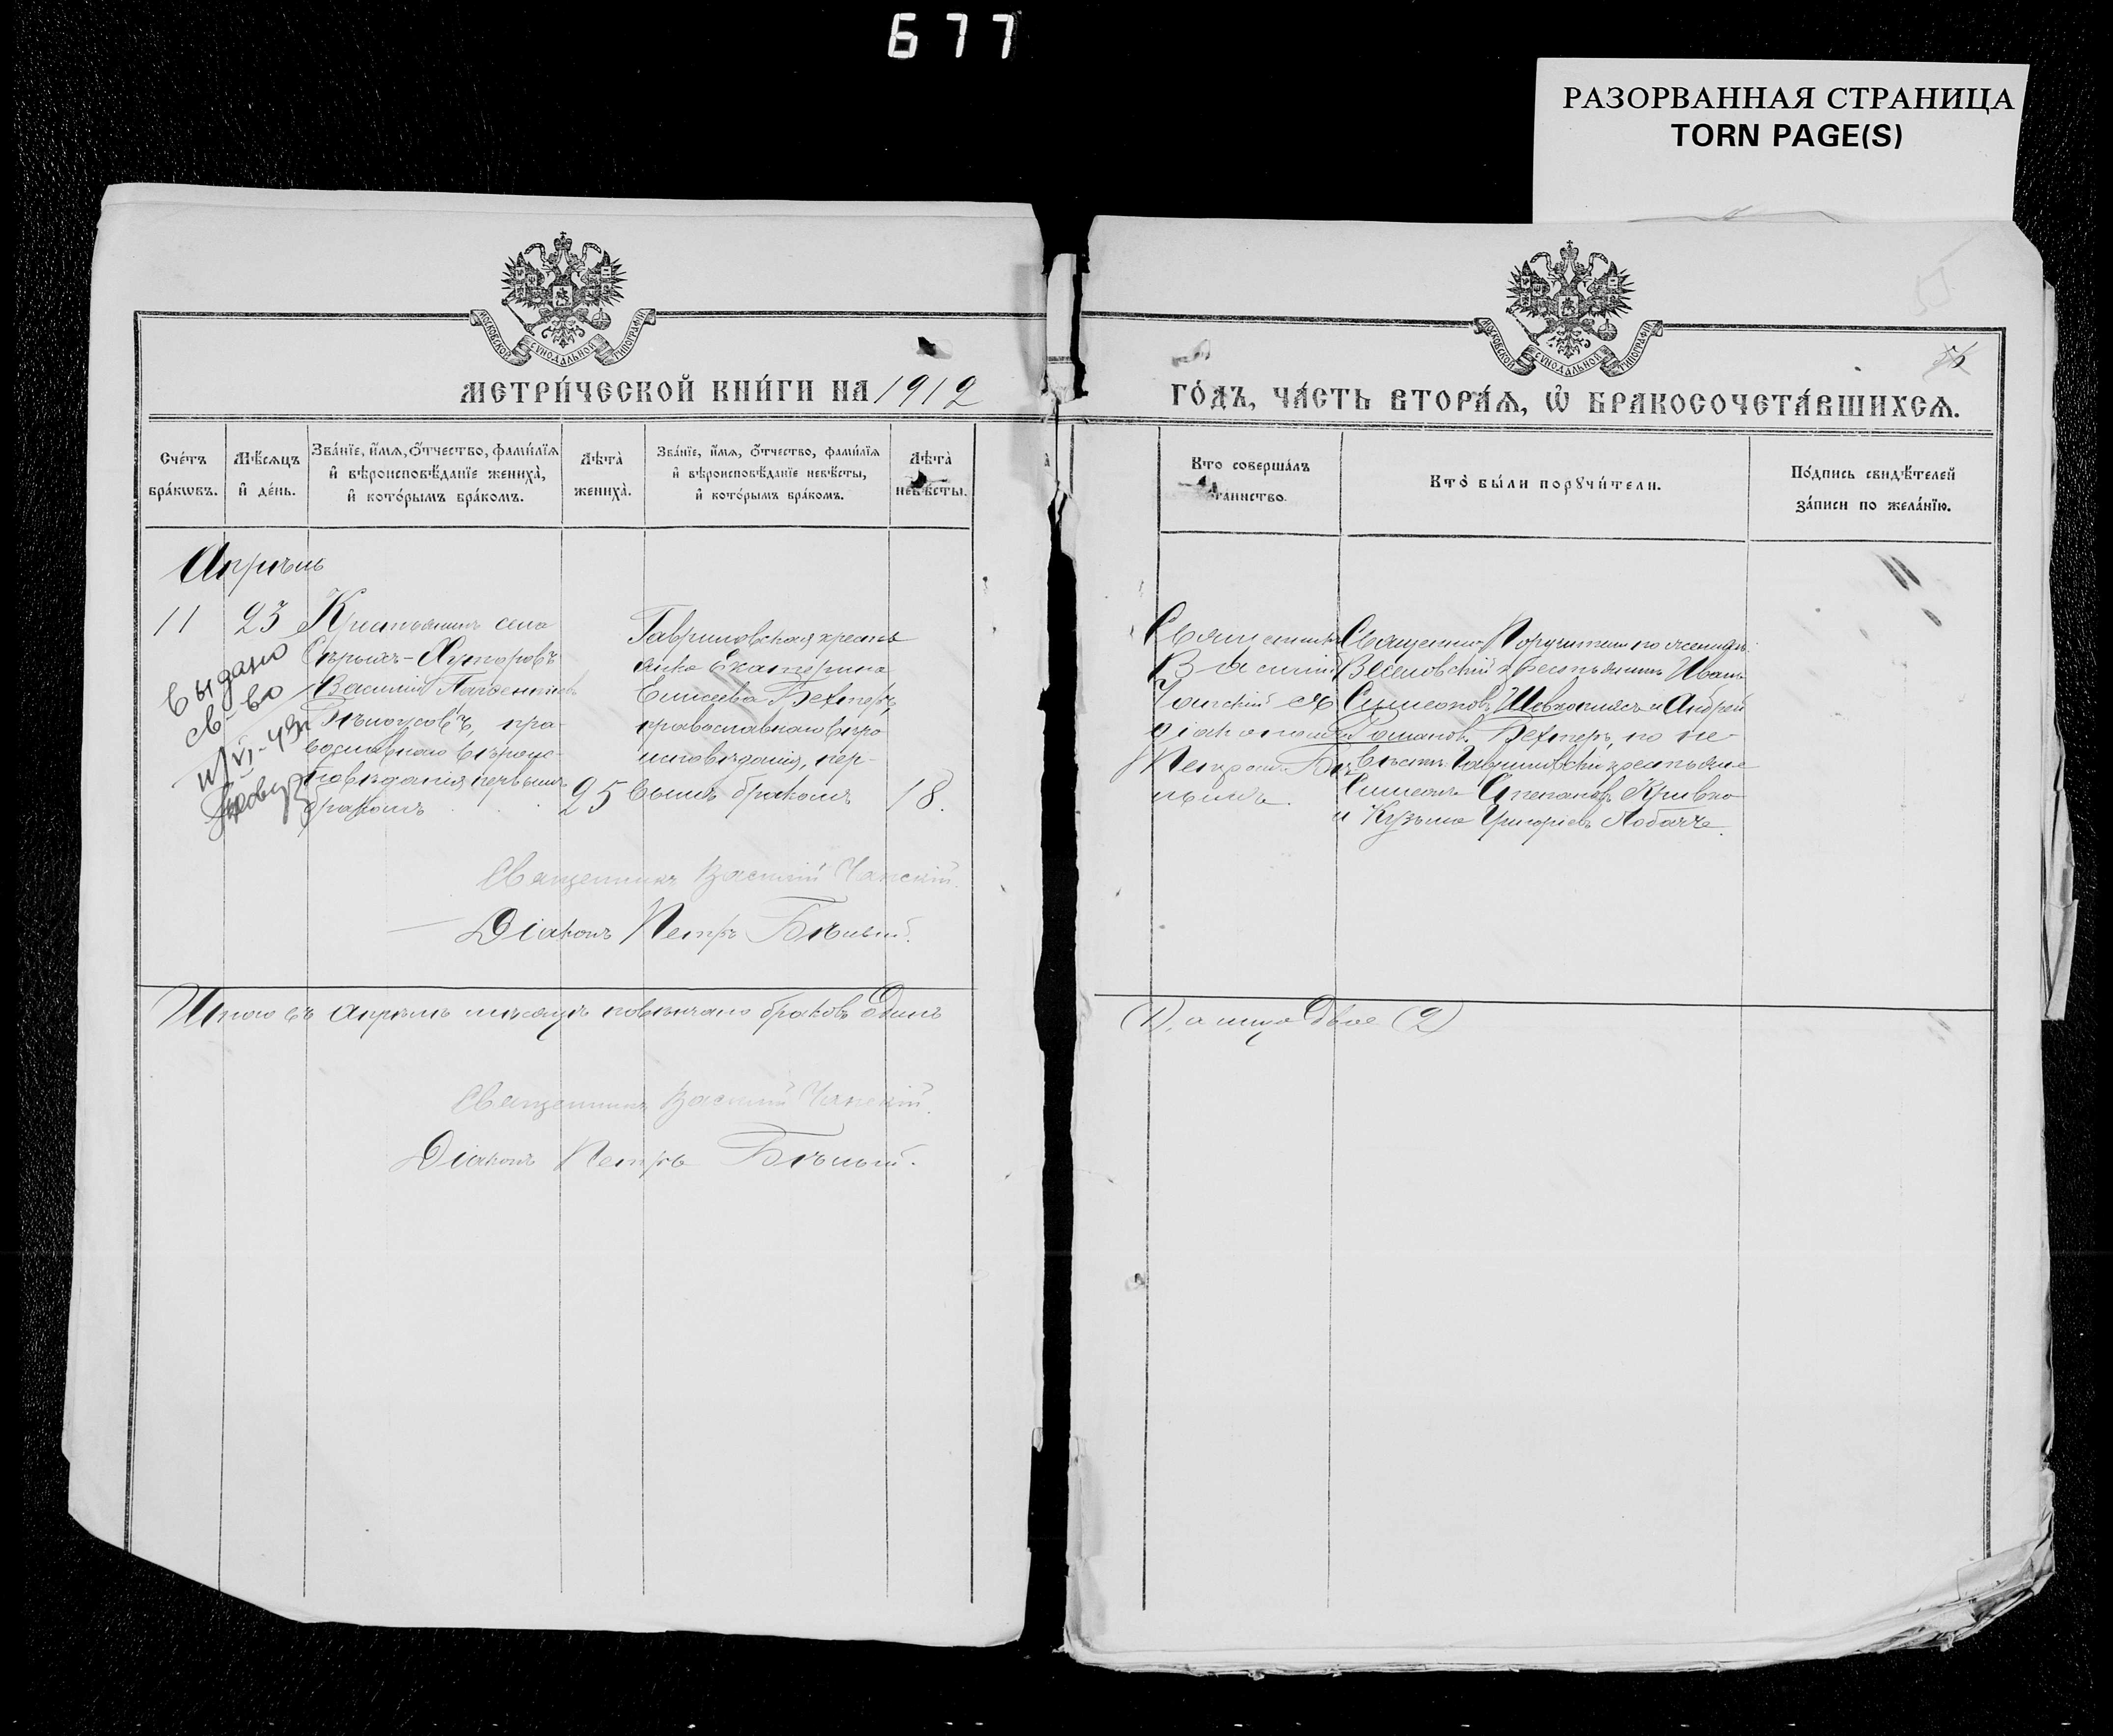 677
РАЗОРВАННАЯ СТРАНИЦА
TORN PAGE(S)
МОСКОВСКОЙ СУНОДАЛЬНОЙ ТИПОГРАФІИ
МОСКОВСКОЙ СУНОДАЛЬНОЙ ТИПОГРАФІИ
МЕТРИ́ЧЕСКОЙ КНИ́ГИ НА 1912
ГО́ДЪ, ЧА́СТЬ ВТОРА́Ѧ, Ѡ҆ БРАКОСОЧЕТА́ВШИХСѦ.
Сче́тъ бра́кѡвъ.
Мѣ́сѧцъ и҆ де́нь.
Зва́нїе, и҆́мѧ, ѻ҆́тчество, фами́лїѧ
и҆ вѣроисповѣ́данїе жениха̀,
и҆ кото́рымъ бра́комъ.
Лѣта̀ жениха̀.
Зва́нїе, и҆́мѧ, ѻ҆́тчество, фами́лїѧ
и҆ вѣроисповѣ́данїе невѣ́сты,
и҆ кото́рымъ бра́комъ.
Лѣта̀ невѣ́сты.
Кто соверша́лъ
таинство.
Кто̀ бы́ли порꙋчи́тели.
По́дпись свидѣ́телей
за́писи по жела́нїю.
Апрѣль
11
23
Крестьянинъ села
Сѣрыхъ-Хуторовъ
Василій
Бѣлоусовъ, пра-
вославнаго вѣроис-
повѣданія первымъ
бракомъ
25
выдано
св-во
Гавриловская кресть
янка Екатерина
Елисеева Бехтеръ,
православнаго вѣро
исповѣданія, пер-
вымъ бракомъ
18.
Священникъ
Василій
Чанскій съ
діакономъ
Петромъ Бѣ
лымъ.
Поручители по женихѣ:
крестьянинъ Иванъ
Симеоновъ Шевкоплясъ и Андрей
Романовъ Бехтеръ, по не-
вѣстѣ: Гавриловскіе крестьяне
Симеонъ Степановъ Кривко
и Кузьма Григорьевъ
Священникъ Василій Чанскій.
Діаконъ Петръ Бѣлый.
Итого въ Апрѣлѣ мѣсяцѣ повѣнчано браковъ Одинъ
(1), а лицъ Двое (2)
Священникъ Василій Чанскій.
Діаконъ Петръ Бѣлый.